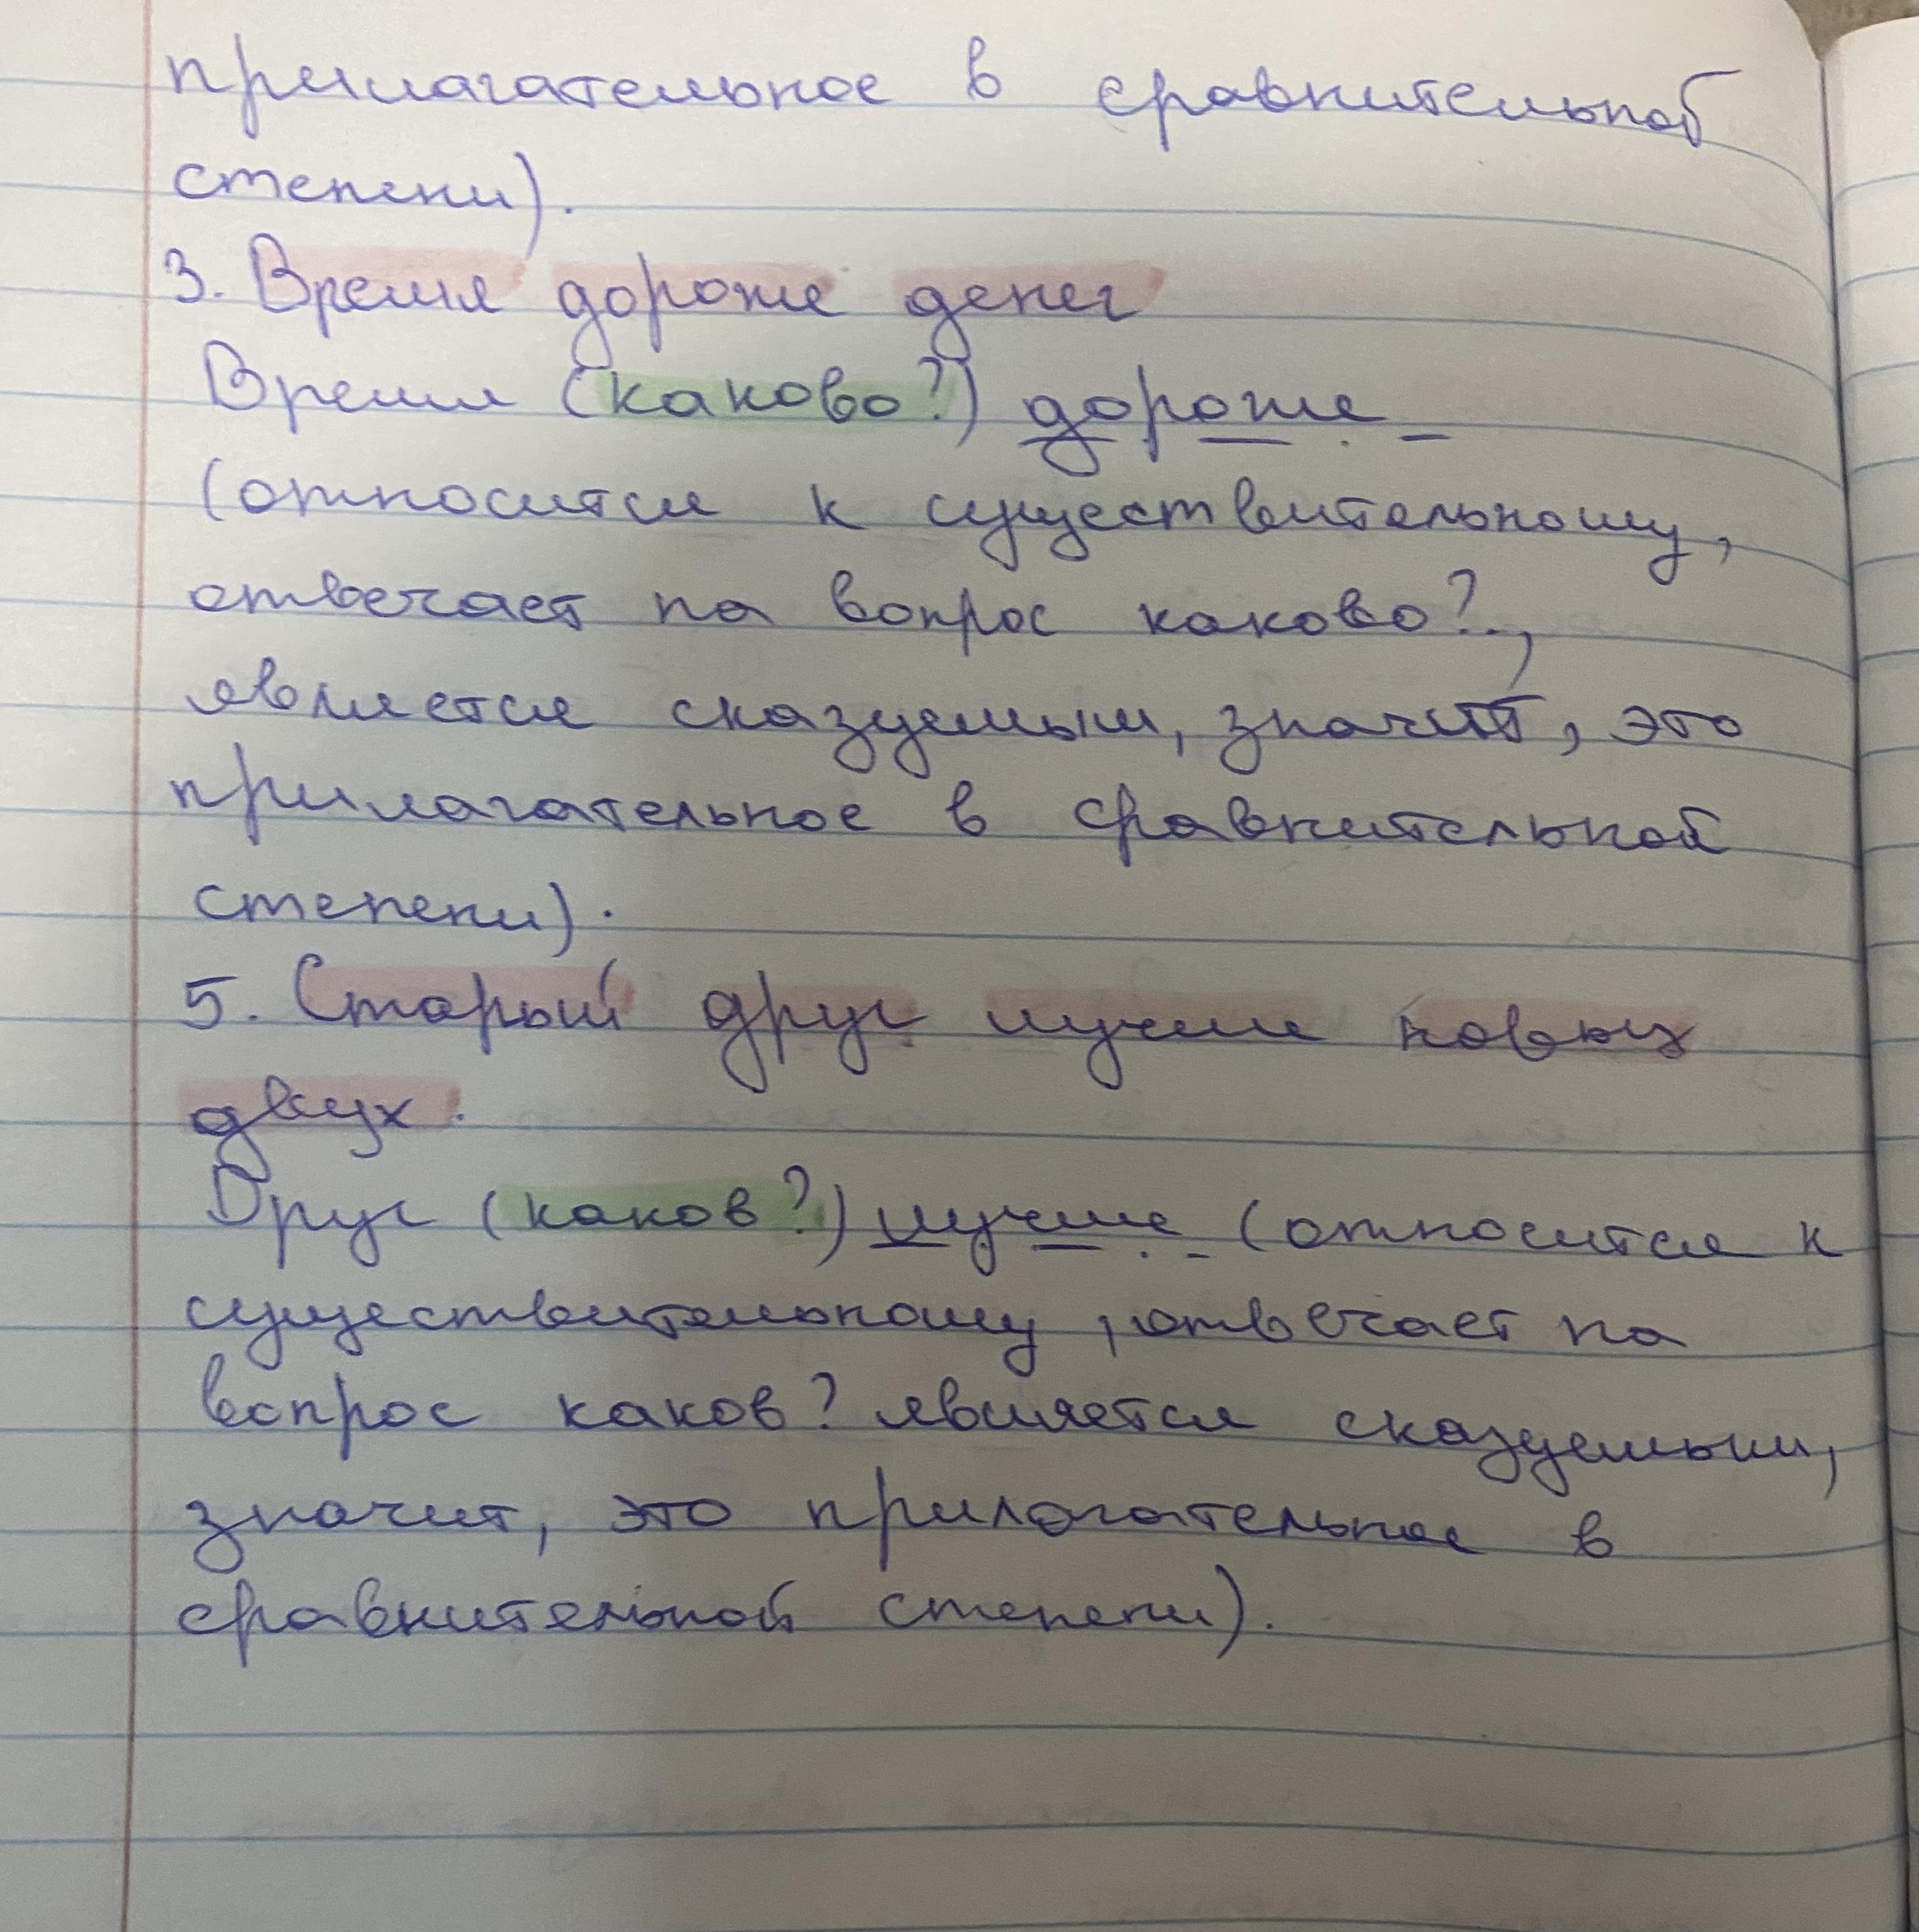 прилагательное в сравнительной
степени).
3. Время дороже денег
Время (каково?) дороже
(относится к существительному,
отвечает на вопрос каково?.,
является сказуемым, значит, это
прилагательное в сравнительной
степени).
5. Старый друг лучше новых
двух.
Друг (каков?) лучше (относится к
существительному, отвечает на
вопрос каков? является сказуемым,
значит, это прилагательное в
сравнительной степени).